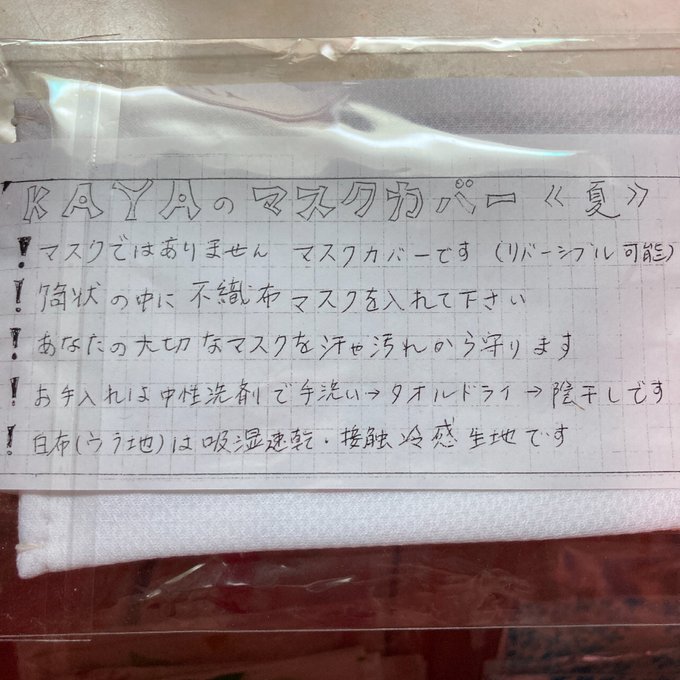 KAYAのマスクカバー《夏》
! マスクではありません マスクカバーです (リバーシブル可能)
! 筒状の中に不織布マスクを入れて下さい
! あなたの大切なマスクを汗や汚れから守ります
! お手入れは中性洗剤で手洗い→タオルドライ→陰干しです
! 白布(ウラ地)は吸湿速乾・接触冷感生地です